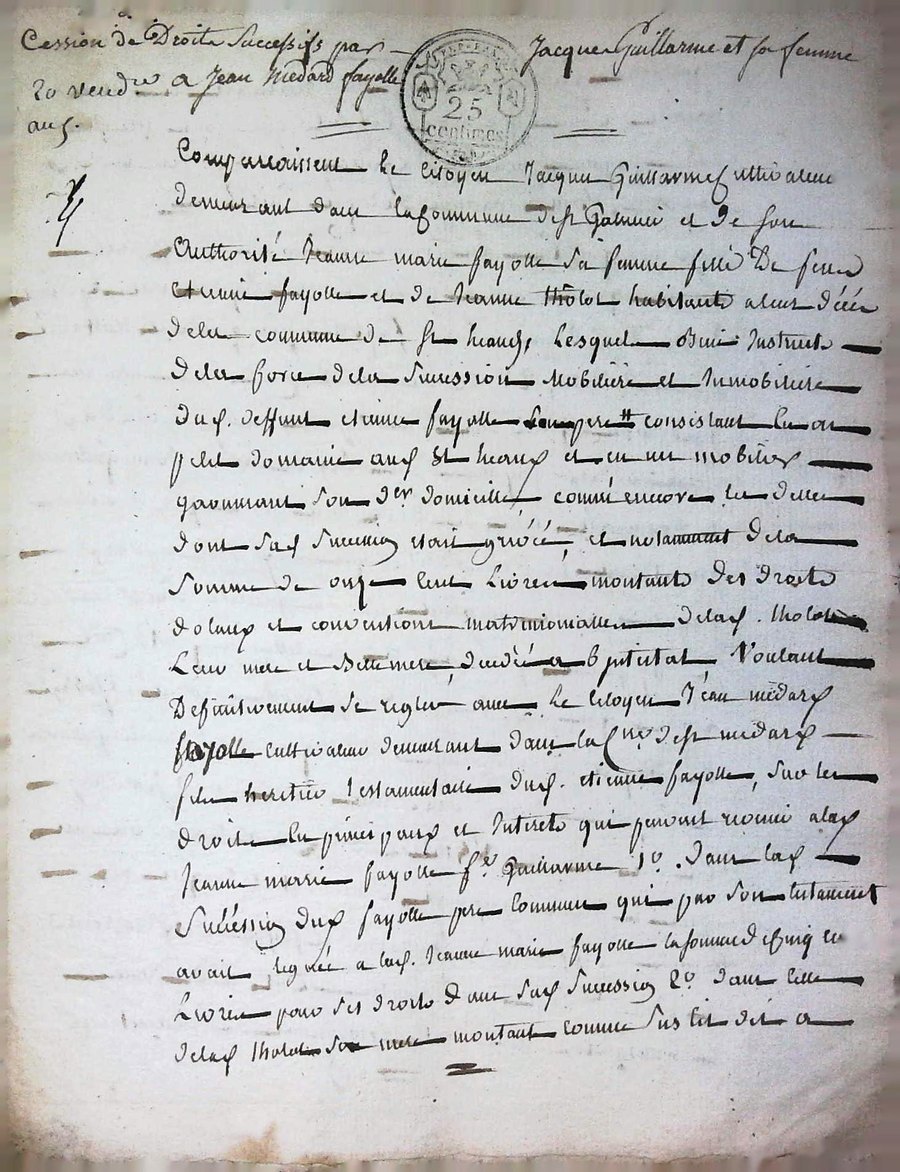 Cession de Droits Successifs par Jacques Guillarme et sa femme
20 vendre a Jean Medard fayolle
an 5.
25
centimes
Comparaissent le Citoyen Jacques Guillarme Cultivateur
demeurant dans la Commune de st Galmier et de son
Authorité Jeanne marie fayolle sa femme fille De feu
etienne fayolle et de Jeanne tholot habitants a leur décés
dela commune de st heand, Lesquels Bien Instruits
dela force dela Succession Mobiliere et Immobiliere
dud. deffunt etienne fayolle consistant en un
petit domaine aud st heand et en un mobilier
garnissant son der domicille, comme encore les dettes
dont sad Succession etait grévée, et notamment dela
Somme de onze Cent Livres montant des droits
dotaux et conventions matrimonialles delad. tholot
Leur mere et Belle mere, decedée ab jntestat Voulant
Definitivement se regler avec le Citoyen Jean medard
fayolle cultivateur demeurant dans la Cne de st medard
fils heritier testamentaire dud. etienne fayolle, sur les
droits en principaux et Interets qui peuvent revenir alad
Jeanne marie fayolle fe Guillarme 1o. dans lad
Succéssion dud fayolle pere Commun qui par son testament
avait leguée a lad. Jeanne marie fayolle la somme de Cinq
Livres pour ses droits dans sad Succession 2o dans celle
delad tholot sa mere montant comme sus est dit a